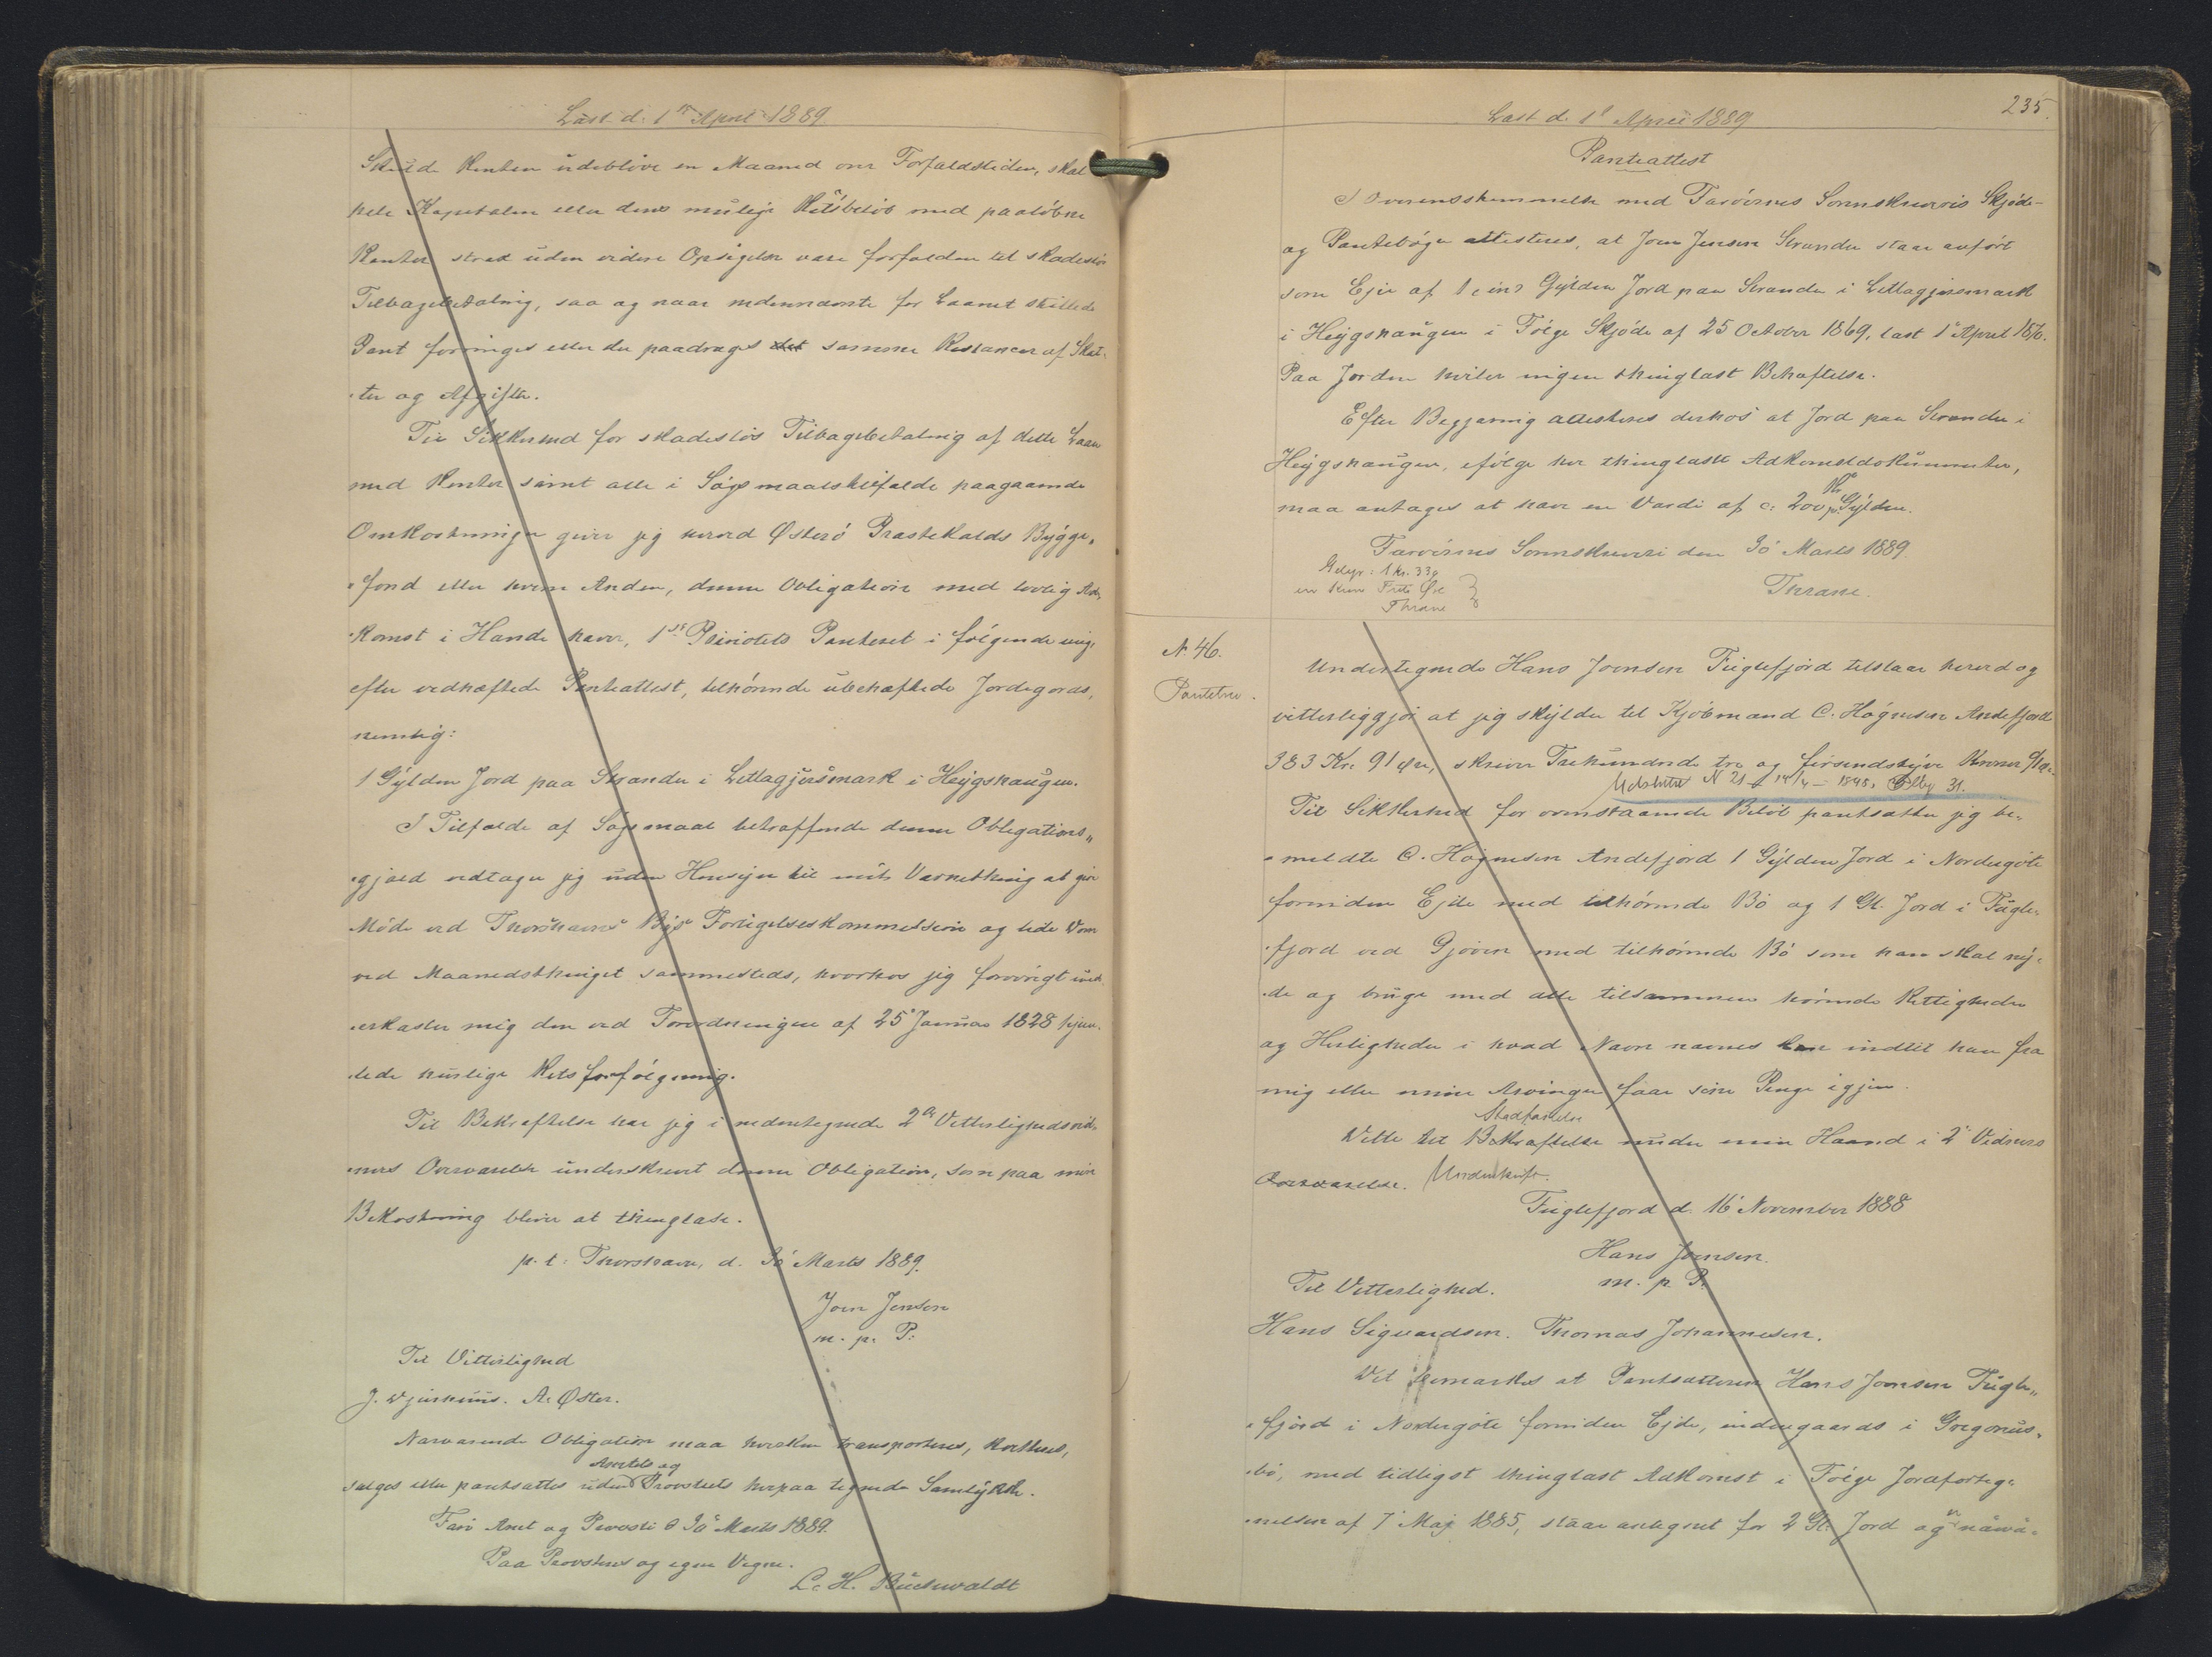 Læst d. 1ste April 1889
Skulde Renten udeblive en Maaned over Forfaldstiden, skal
hele Kapitalen eller dens mulige Restbeløb med paaløbne
Renter strax uden videre Opsigelse være forfalden til skadesløs
Tilbagebetaling, saa og naar nedennævnte for Laanet stillede
Pant forringes eller der paadrages det samme Restancer af Skat-
ter og Afgifter.
Til Sikkerhed for skadesløs Tilbagebetaling af dette Laan
med Renter samt alle i Søgsmaalstilfælde paagaaende
Omkostninger giver jeg herved Østerø Præstekalds Bygge-
fond eller hvem Anden, denne Obligation med lovlig Ad-
komst i Hænde haver, 1ste Prioritets Panteret i følgende mig,
efter vedhæftede Panteattest, tilhørende ubehæftede Jordegods,
nemlig:
1 Gylden Jord paa Strander i Letlagjersmark i Heygshaugen.
I Tilfælde af Søgsmaal betræffende denne Obligations-
gjæld vedtager jeg uden Hensyn til mit Værnething at give
Møde ved Thorshavns Bys Forligelseskommission og lide Dom
ved Maanedsthinget sammesteds, hvorhos jeg forøvrigt und-
erkaster mig den ved Forordningen af 25 Januar 1828 hjem-
lede hurtige Retsforfølgning.
Til Bekræftelse har jeg i nedentegnede 2de Vitterlighedsvid-
ners Overværelse underskrevet denne Obligation, som paa min
Bekostning bliver at thinglæse.
p. t. Thorshavn, d. 30 Marts 1889.
Joen Jensen
m. p. P.
Til Vitterlighed
J. Djurhuus. A. Øster.
Nærværende Obligation maa hverken transporteres, kvitteres,
Amtets og
sælges eller pantsættes uden Provstiets herpaa tegnede Samtykke.
Færø Amt og Provsti d 30 Marts 1889.
Paa Provstens og egne Vegne.
C. H. Buchwaldt
Læst d. 1ste April 1889
235.
Panteattest
I Overensstemmelse med Færøernes Sorenskriveris Skjøde-
og Pantebøger attesteres, at Joen Jensen Strander staar anført
som Ejer af 1 (en) Gylden Jord paa Strander i Letlagjersmark
i Heygshaugen i Følge Skjøde af 25 October 1869, læst 1 April 1870.
Paa Jorden hviler ingen thinglæst Behæftelse.
Efter Begjæring attesteres derhos at Jord paa Strander i
Heygshaugen, ifølge her thinglæste Adkomstdokumenter,
Kr
maa antages at have en Værdi af c. 200 pr Gylden.
Færøernes Sorenskriveri den 30 Marts 1889.
Gebyr: 1 Kr. 33 Ø
en Krone Treti Øre
Thrane
Thrane.
N. 46.
Pantebrev.
Undertegnede Hans Joensen Fuglefjord tilstaar herved og
vitterliggjør at jeg skylder til Kjøbmand C. Høgnesen Andefjord
383 Kr. 91 Øre, skriver Trehundrede tre og firsindstyve Kroner 91 Ø.
Udslettet N 21 14/4 - 1898,
Til Sikkerhed for ovenstaaende Beløb pantsætter jeg be-
meldte C. Høgnesen Andefjord 1 Gylden Jord i Nordregøte
forneden Ejde med tilhørende Bø og 1 Gl. Jord i Fugle-
fjord ved Gjoven med tilhørende Bø som han skal ny-
de og bruge med alle tilsammen hørende Rettigheder
og Herligheder i hvad Navn nævnes kan indtil han fra
mig eller mine Arvinger faar sine Penge igjen.
Stadfæstelse
Dette til Bekræftelse under min Haand i 2 Vidners
Overværelse. Underskrift.
Fuglefjord d. 16 November 1888
Hans Joensen.
m. p. P.
Til Vitterlighed.
Hans Sigvardsen. Thomas Johannesen.
Det bemærkes at Pantsætteren Hans Joensen Fugle-
fjord i Nordregøte forneden Ejde, indengaards i Gregorius-
bø, med tidligst thinglæst Adkomst i Følge Jordforteg-
nelsen af 7 Maj 1885, staar antegnet for 2 Gl. Jord og